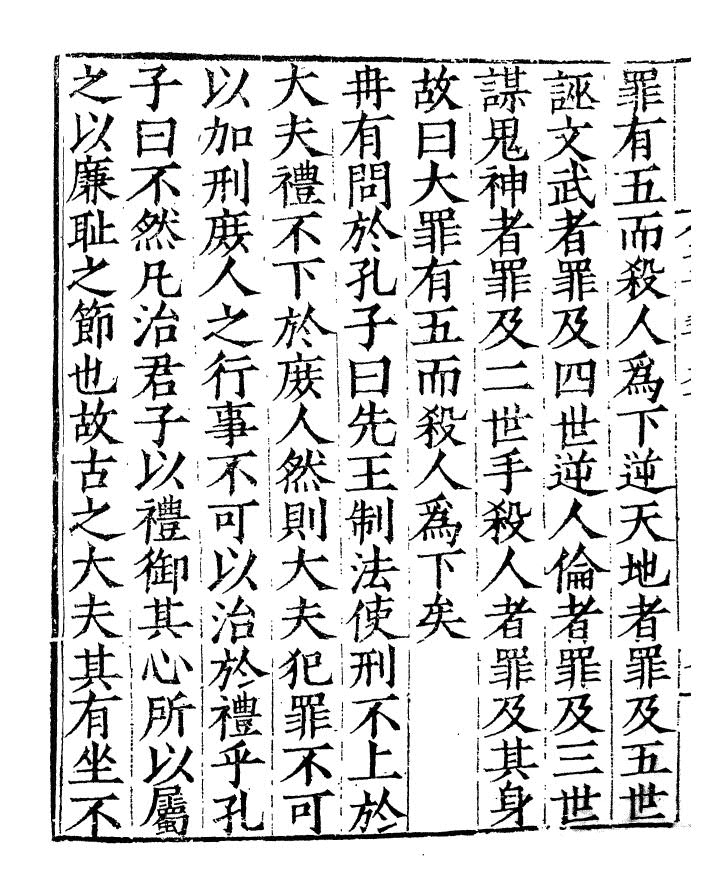 罪有五而殺人爲下逆天地者罪及五世
誣文武者罪及四世逆人倫者罪及三世
謀鬼神者罪及二世手殺人者罪及其身
故曰大罪有五而殺人爲下矣
冉有問於孔子曰先王制法使刑不上於
大夫禮不下於庶人然則大夫犯罪不可
以加刑庶人之行事不可以治於禮乎孔
子曰不然凡治君子以禮御其心所以屬
之以廉耻之節也故古之大夫其有坐不